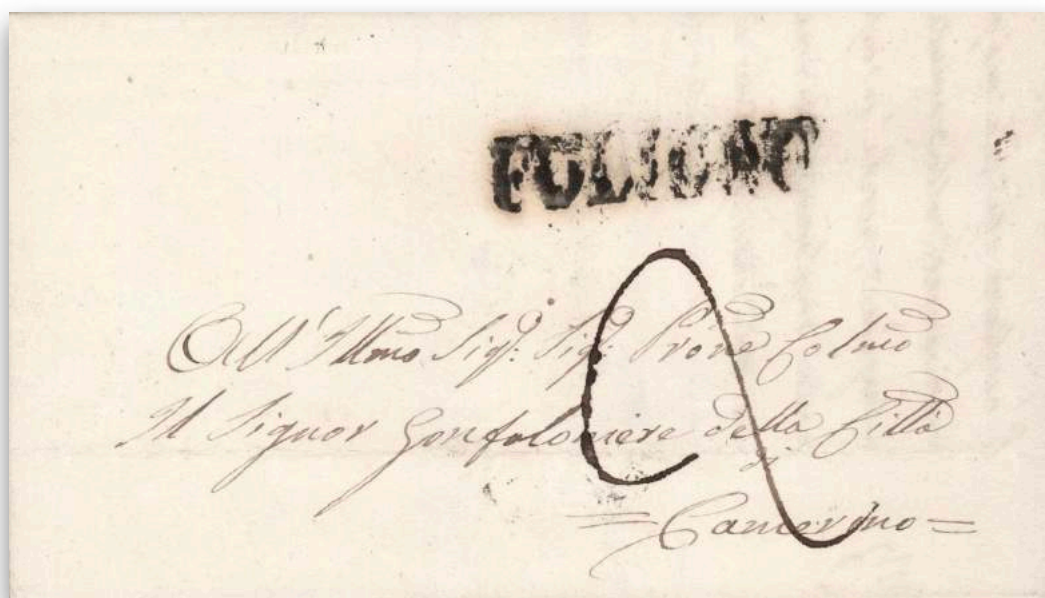 FULIGNO
All' Illmo Sigr: Sigr: Prone Colmo
Il Signor Gonfaloniere della Città
di
= Camerino =